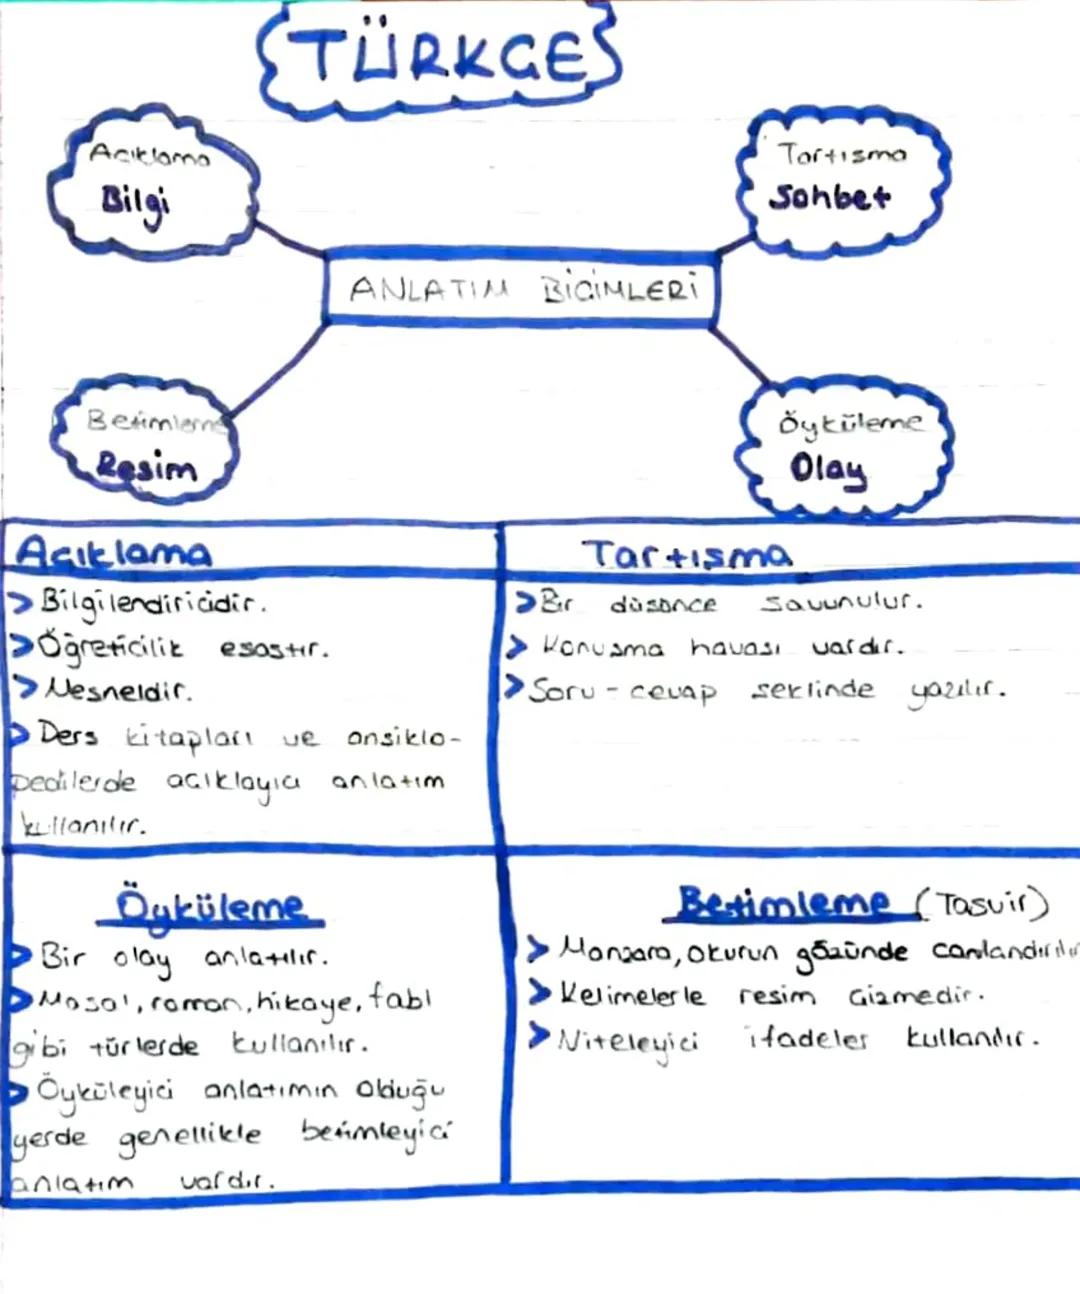 TÜRKÇE
Açıklama
Bilgi
Tartışma
Sohbet
ANLATIM BİÇİMLERİ
Betimleme
Resim
Öyküleme
Olay
Açıklama
> Bilgilendiricidir.
> Öğreticilik esastır.
> Nesneldir.
> Ders kitapları ve ansiklo-
pedilerde açıklayıcı anlatım
kullanılır.
Tartışma
> Bir düşünce savunulur.
> Konuşma havası vardır.
> Soru - cevap şeklinde yazılır.
Öyküleme
> Bir olay anlatılır.
> Masal, roman, hikaye, fabl
gibi türlerde kullanılır.
> Öyküleyici anlatımın olduğu
yerde genellikle betimleyici
anlatım vardır.
Betimleme (Tasvir)
> Manzara, okurun gözünde canlandırılır
> Kelimelerle resim çizmedir.
> Niteleyici ifadeler kullanılır.